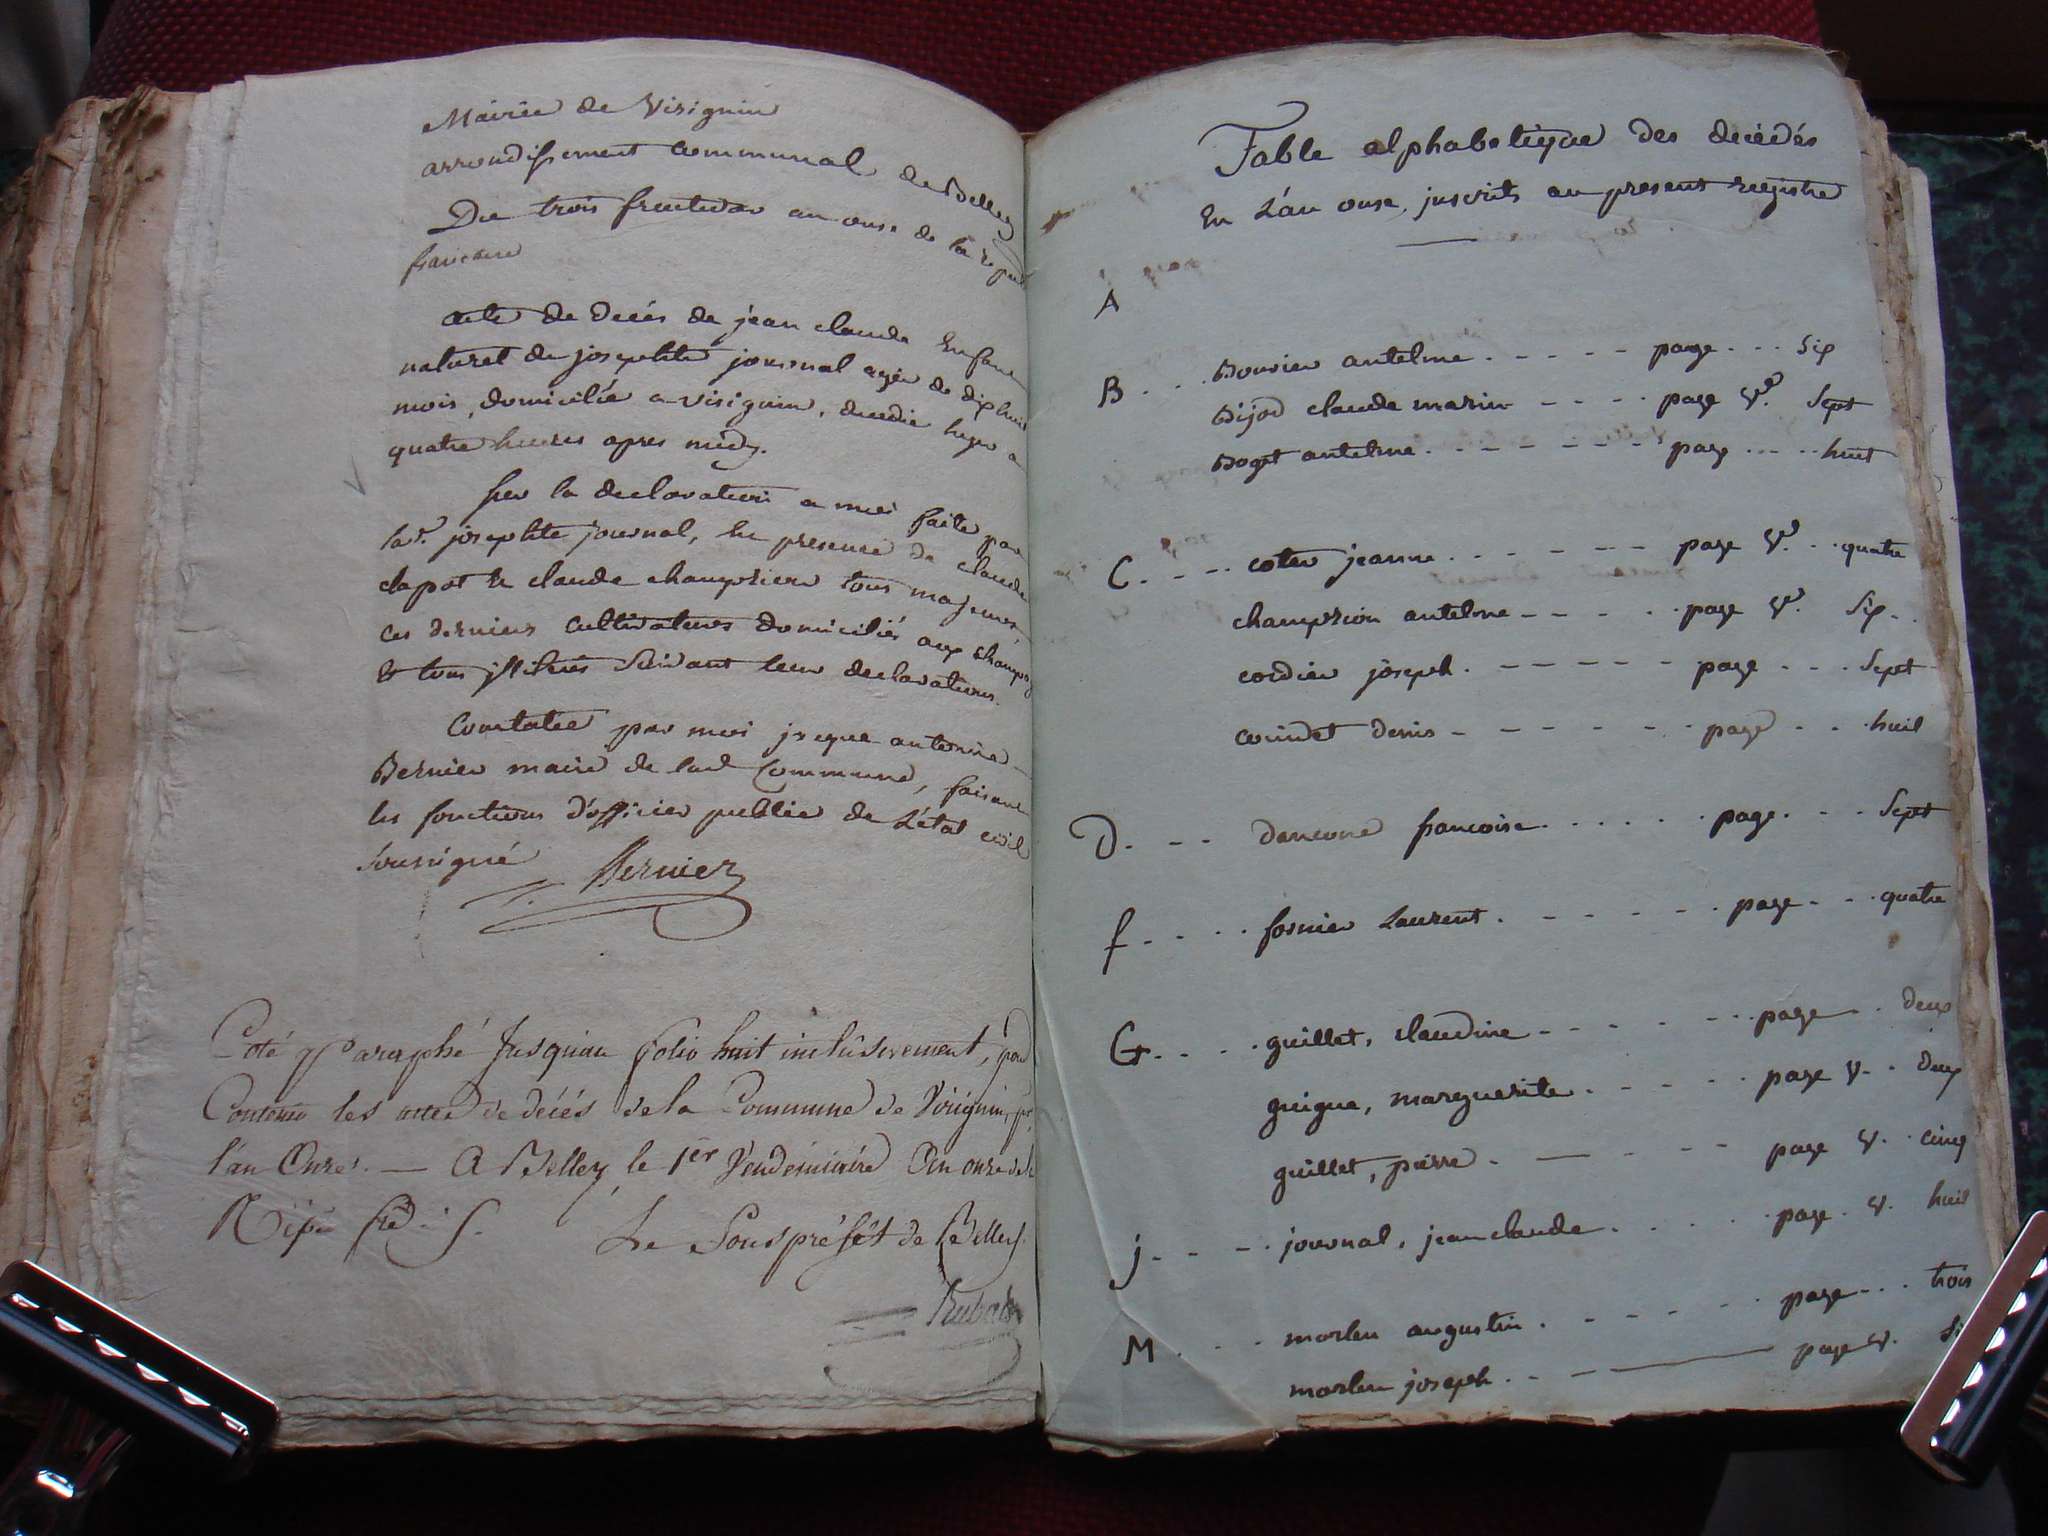 Mairie de Virignin
arrondissement communal de Belley
Du trois fructidor an onse de la repu
francaise
acte de decés de jean claude Enfant
naturel de josephte journal agée de dix huit
mois, domiciliée a virignin, decedé hyer a
quatre heures apres midy.
sur la declaration a moi faite par
lad. josephte journal, En presence de claude
clapot & claude champrion tous majeurs,
ces derniers cultivateurs domiciliés aux champ
& tous illiterés suivant leur declaration.
Constatée par moi jacque antoine
Bernier maire de lad Commune, faisant
les fonctions d'officier public de L'état civil
soussigné
Bernier
Coté & Paraphé Jusquau folio huit inclusivement, pour
Contenir les actes de décés de la Commune de Virignin, pr
l'an Onze. — A Belley le 1er Vendemiaire An onze de la
Répu fse
Le Sous préfét de Belley.
Rubat
Table alphabetique des decédés
En L'an onse, inscrits au present registre
A
B . . . Bouvier antelme . - - - - page . . . Six
Bijod claude marin - - - - page Vo. Sept
Boget antelme . - - - - - page . . . . huit
C . - - - coter jeanne . - - - - - page Vo. . . quatre
champrion antelme - - - - . page Vo. Six .
cordier joseph . - - - - - page . . . Sept
couindet denis - - - - - - page . . . huit
D . - - dancone francoise . . . . . page . . . Sept
f . - - . . fornier Laurent . - - - - . page . . . quatre
G . . . . guillet, claudine - - - - . page . . deux
guigue, marguerite . - - - - page V. . deux
guillet, pierre . - - - - page V. . cinq
j . - - - . journal, jean claude . . . . page . V. huit
M . . . . morlen augustin . - - - - page . . . trois
morlen joseph . . - page V.